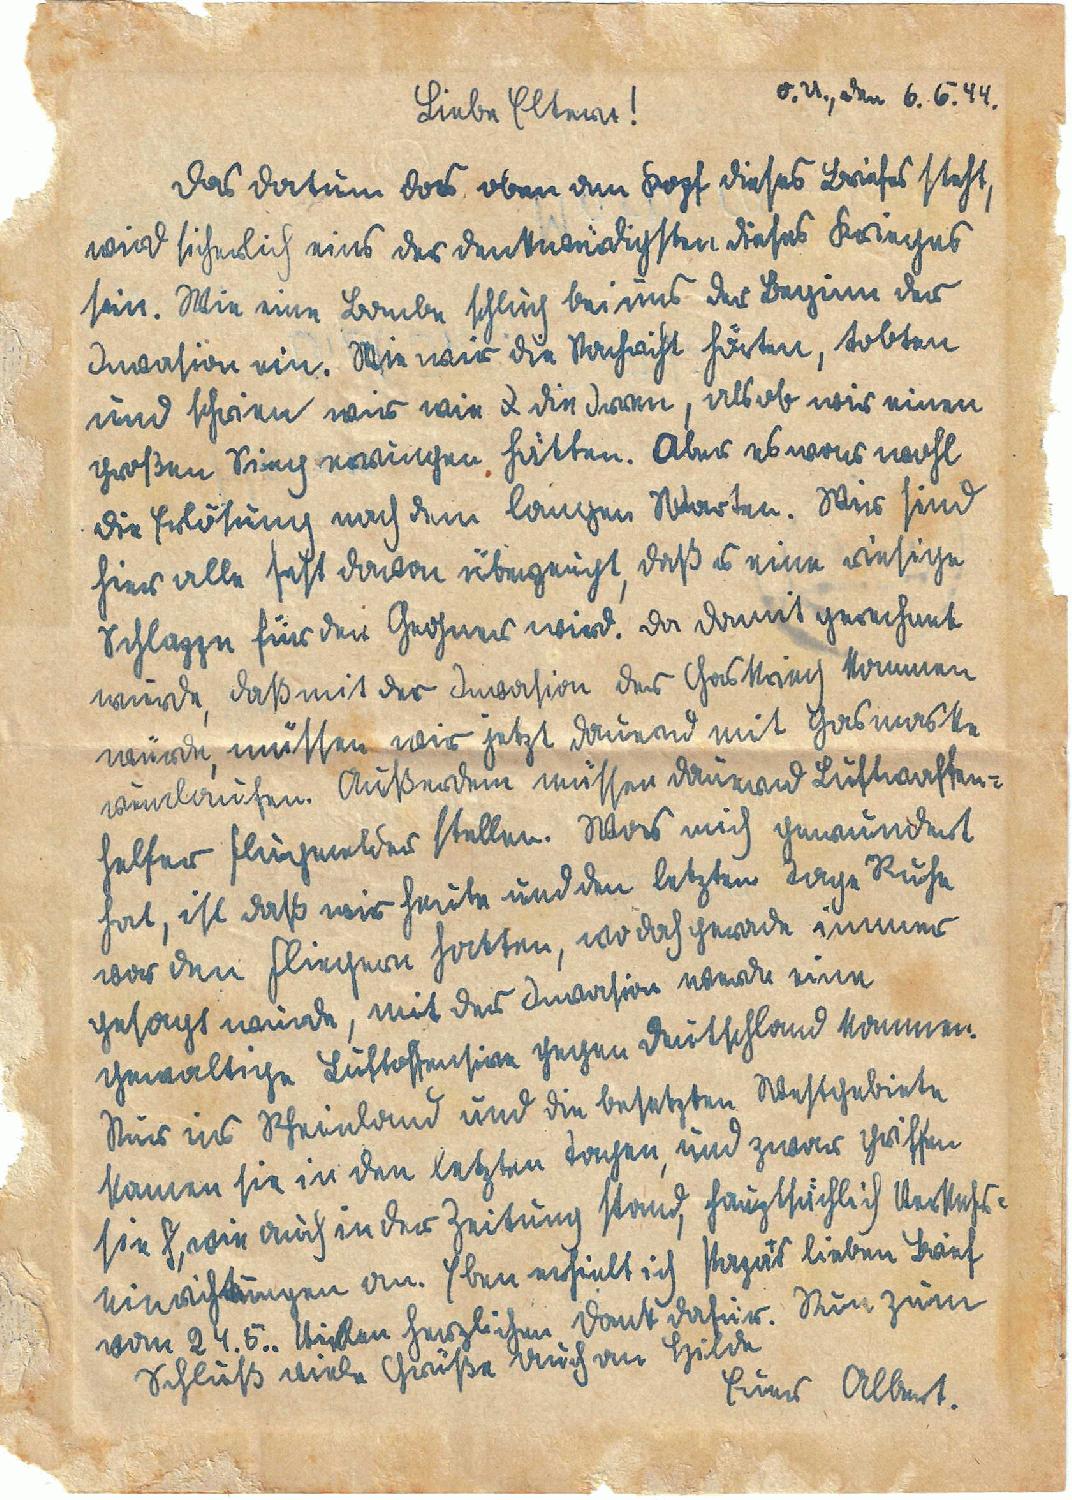 O.U., den 6.6.44.
Liebe Eltern!
Das Datum das oben am Kopf dieses Briefes steht,
wird sicherlich eins der denkwürdigsten dieses Krieges
sein. Wie eine Bombe schlug bei uns der Beginn der
Invasion ein. Wie wir die Nachricht hörten, tobten
und schrien wir wie die Irren, als ob wir einen
großen Sieg errungen hätten. Aber es war wohl
die Erlösung nach dem langen Warten. Wir sind
hier alle fest davon überzeugt, daß es eine riesige
Schlappe für den Gegner wird. Da damit gerechnet
wurde, daß mit der Invasion der Gaskrieg kommen
würde, müssen wir jetzt dauernd mit Gasmaske
rumlaufen. Außerdem müssen dauernd Luftwaffen=
helfer Flugmelder stellen. Was mich gewundert
hat, ist daß wir heute und den letzten Tage Ruhe
vor den Fliegern hatten, wo doch gerade immer
gesagt wurde, mit der Invasion werde eine
gewaltige Luftoffensive gegen Deutschland kommen.
Nur ins Rheinland und die besetzten Westgebiete
kamen sie in den letzten Tagen, und zwar griffen
sie, wie auch in der Zeitung stand, hauptsächlich Verkehrs=
einrichtungen an. Eben erhielt ich Papas lieben Brief
vom 24.5.. Vielen herzlichen Dank dafür. Nun zum
Schluß viele Grüße auch an Hilde
Euer Albert.